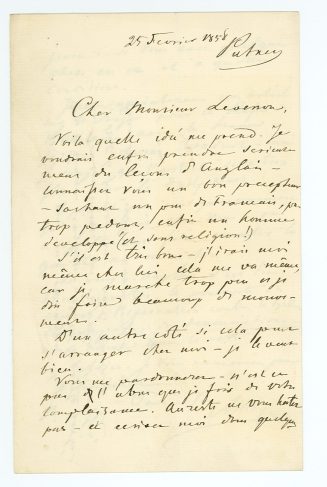 25 Fevrier 1858
Putney
Cher Monsieur
Voila quelle idée me prend. Je
voudrais enfin prendre serieuse
ment des leçons d'Anglais —
connaissez vous un bon precepteur
— sachant un peu de francais, pas
trop pedant, enfin un homme
developpé (et sans religion!)
S'il est très bon — j'irais moi
même chez lui, cela me va même,
car je marche trop peu et je
dois faire beaucoup de mouve-
ment.
D'un autre côté si cela peut
s'arranger chez moi — je le veux
bien.
Vous me pardonnerez — n'est ce
pas de l'abus que je fais de votre
complaisance. Au reste ne vous hatez
pas — et ecrivez moi dans quelques